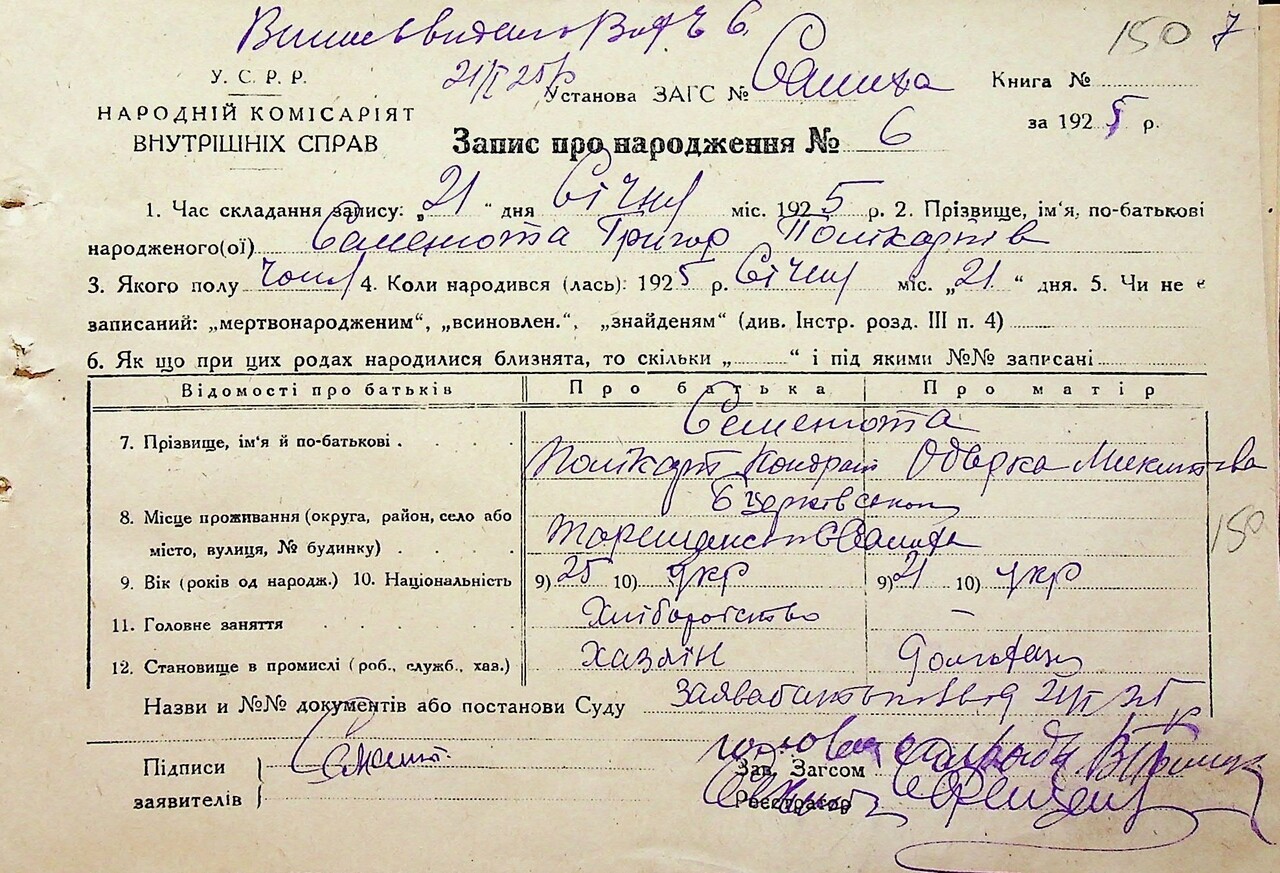 150 7
У. С. Р. Р.
21/I 25р
Установа ЗАГС №
Книга №
НАРОДНІЙ КОМІСАРІЯТ
ВНУТРІШНІХ СПРАВ
за 1925 р.
Запис про народження № 6
1. Час складання запису: „21“ дня Січня міс. 1925 р. 2. Прізвище, ім'я, по-батькові
народженого(ої) Семенюта Григор Полікарпів
3. Якого полу чол 4. Коли народився (лась): 1925 р. Січня міс. „21“ дня. 5. Чи не є
записаний: „мертвонародженим“, „всиновлен.“, „знайденям“ (див. Інстр. розд. III п. 4)
6. Як що при цих родах народилися близнята, то скільки „ “ і під якими №№ записані
Відомості про батьків Про батька Про матір
Семенюта
7. Прізвище, ім'я й по-батькові
Полікарп Кондрат Одарка Микитова
8. Місце проживання (округа, район, село або
місто, вулиця, № будинку)
9. Вік (років од народж.) 10. Національність 9) 25 10) укр 9) 21 10) укр
11. Головне заняття Хліборобство –
12. Становище в промислі (роб., служб., хав.) Хазяїн
Назви и №№ документів або постанови Суду Заява батька від 21/I 25 р
Підписи
Зав. Загсом
заявителів
Реєстратор
150